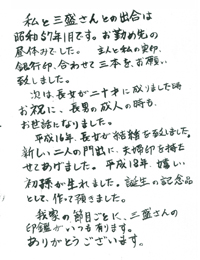 私と三盛さんとの出合は
昭和57年1月です。お勤め先の
昼休みでした。 主人と私の実印、
銀行印、合わせて三本をお願い
致しました。
次は、長女が二十才に成りました時
お祝に、長男の成人の時も
お世話になりました。
平成16年、長女が結婚を致しました。
新しい二人の門出に、夫婦印を持た
せてあげました。平成18年、嬉しい
初孫が生れました。誕生の記念品
として、作って頂きました。
我家の節目ごとに、三盛さんの
印鑑がいつも有ります。
ありがとうございます。